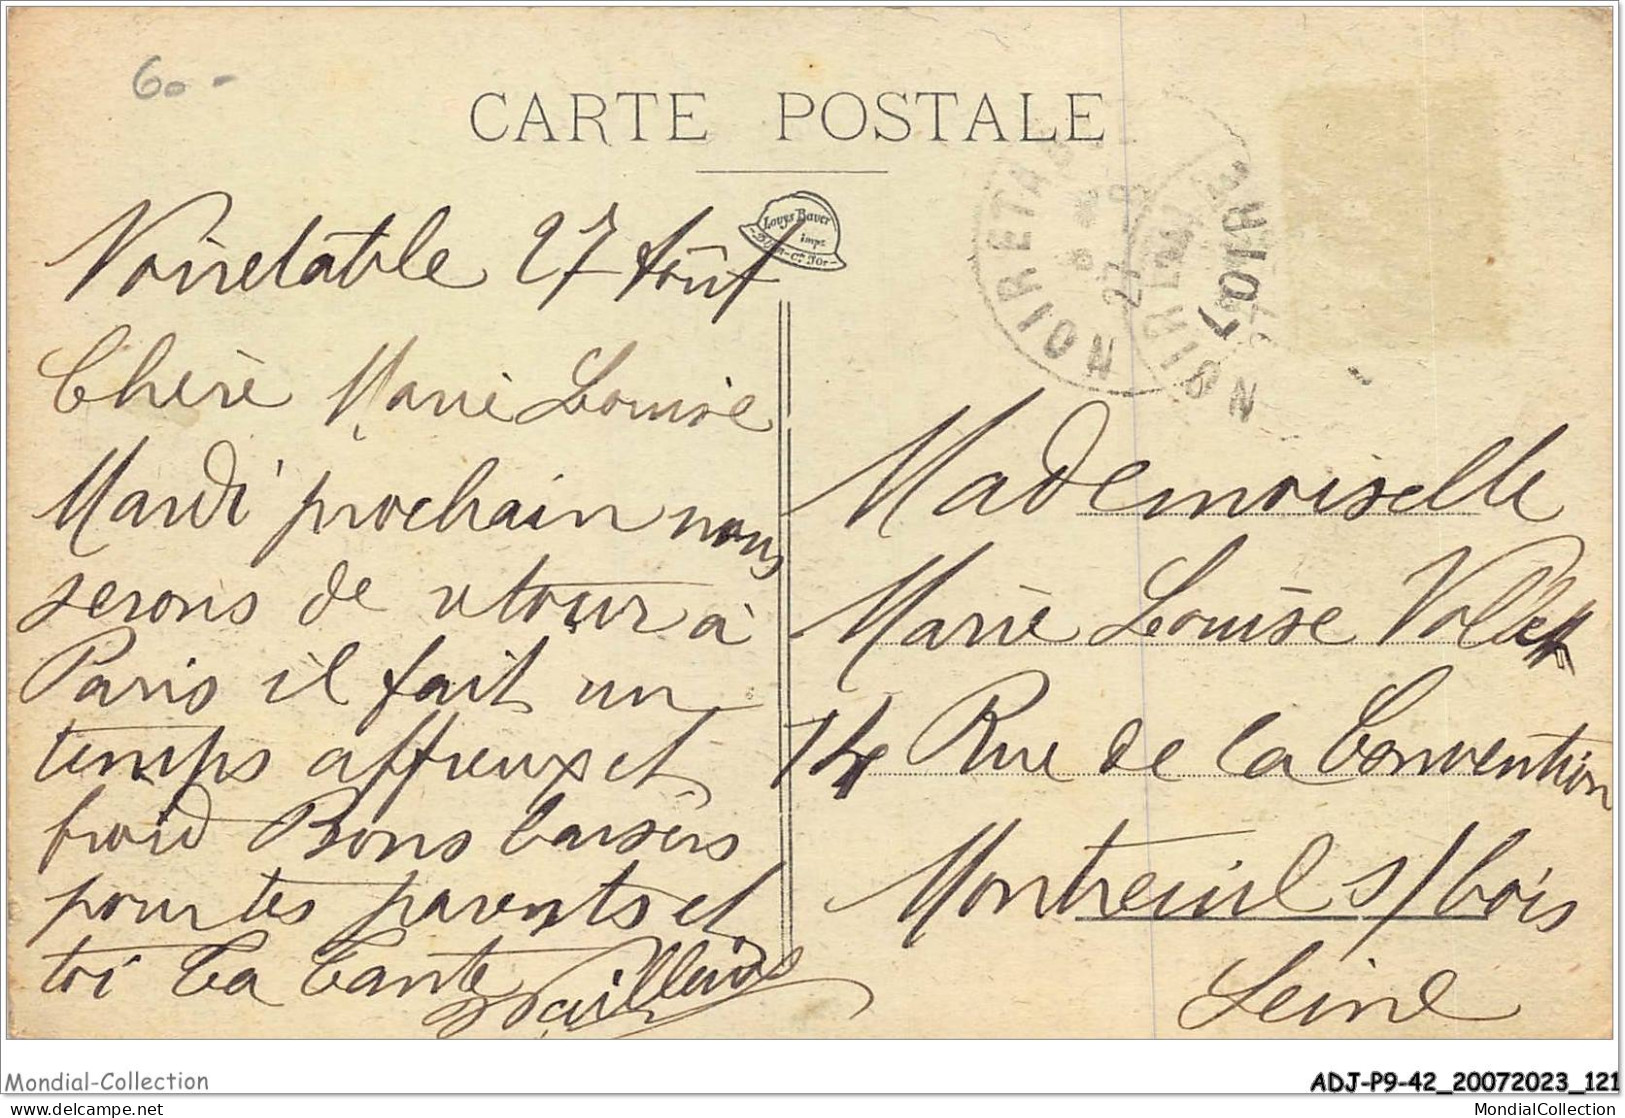 60 -
CARTE POSTALE
Louys Bauer
imp.
Noiretable 27 Août
Chère Marie Louise
Mardi prochain nous
serons de retour à
Paris il fait un
temps affreux et
froid Bons baisers
pour tes parents et
toi Ta tante
NOIRETAB
27
NOIR
LOIR
Mademoiselle
Marie Louise Vollet
14 Rue de la Convention
Montreuil s/bois
Seine
Mondial-Collection
ADJ-P9-42_20072023_121
delcampe.net
MondialCollection